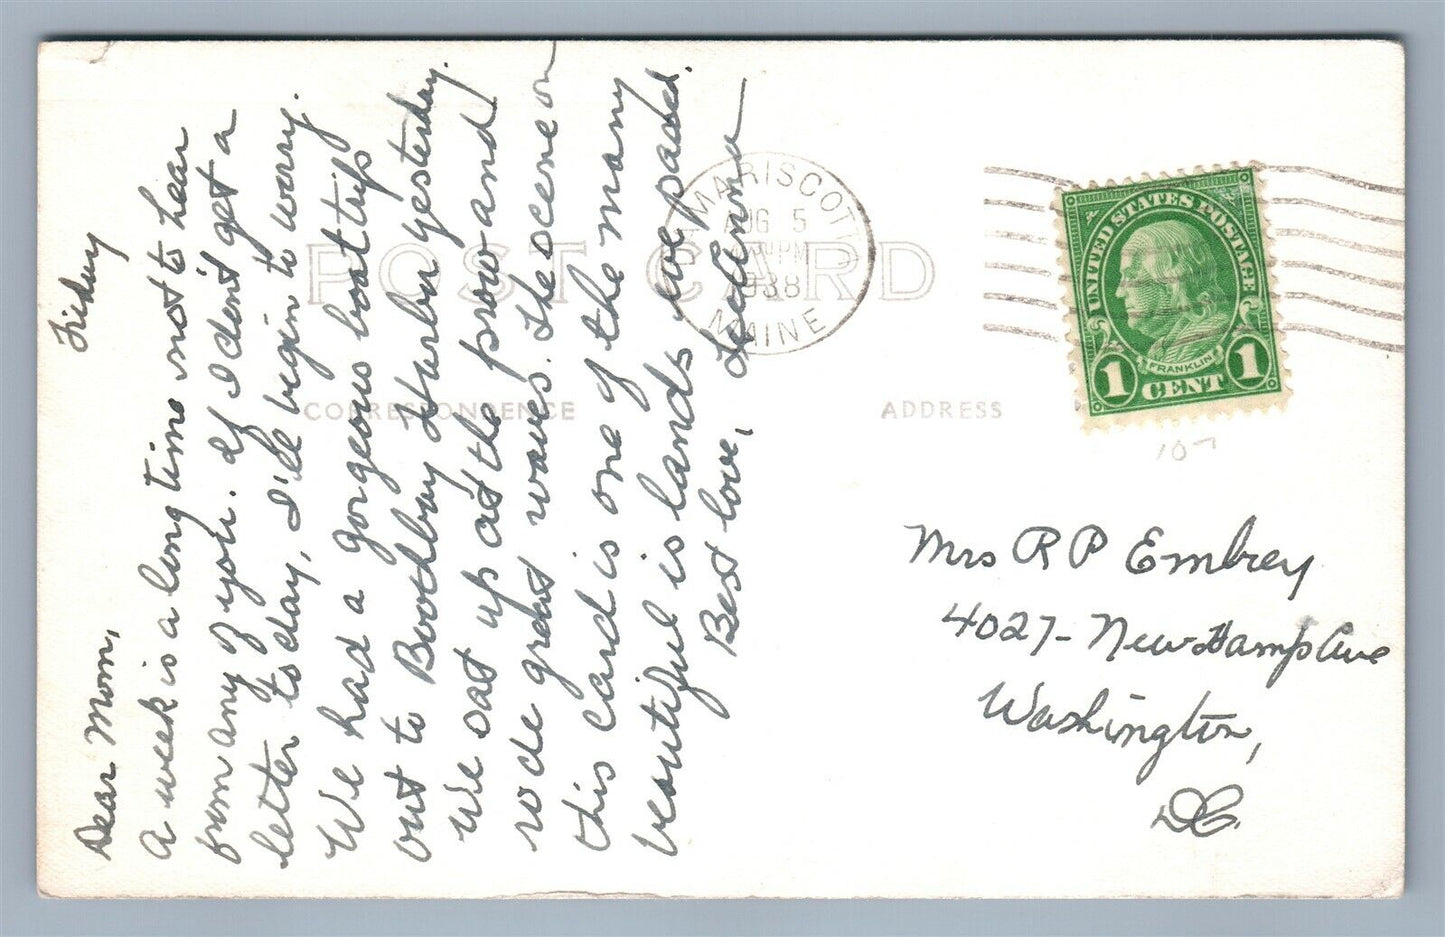 Friday
Dear Mom,
A week is a long time not to hear
from any of you. If I don't get a
letter today, I'll begin to worry.
We had a gorgeous boat trip
out to Boothbay Harbor yesterday.
We sat up at the prow and
rode great waves. The scene on
this card is one of the many
beautiful islands we passed.
Best love,
POST CARD
CORRESPONDENCE
ADDRESS
MARISCOTTA
AUG 5
PM
1938
MAINE
UNITED STATES POSTAGE
FRANKLIN
1 CENT 1
107
Mrs R P Embrey
4027- New Hamp Ave
Washington,
DC.